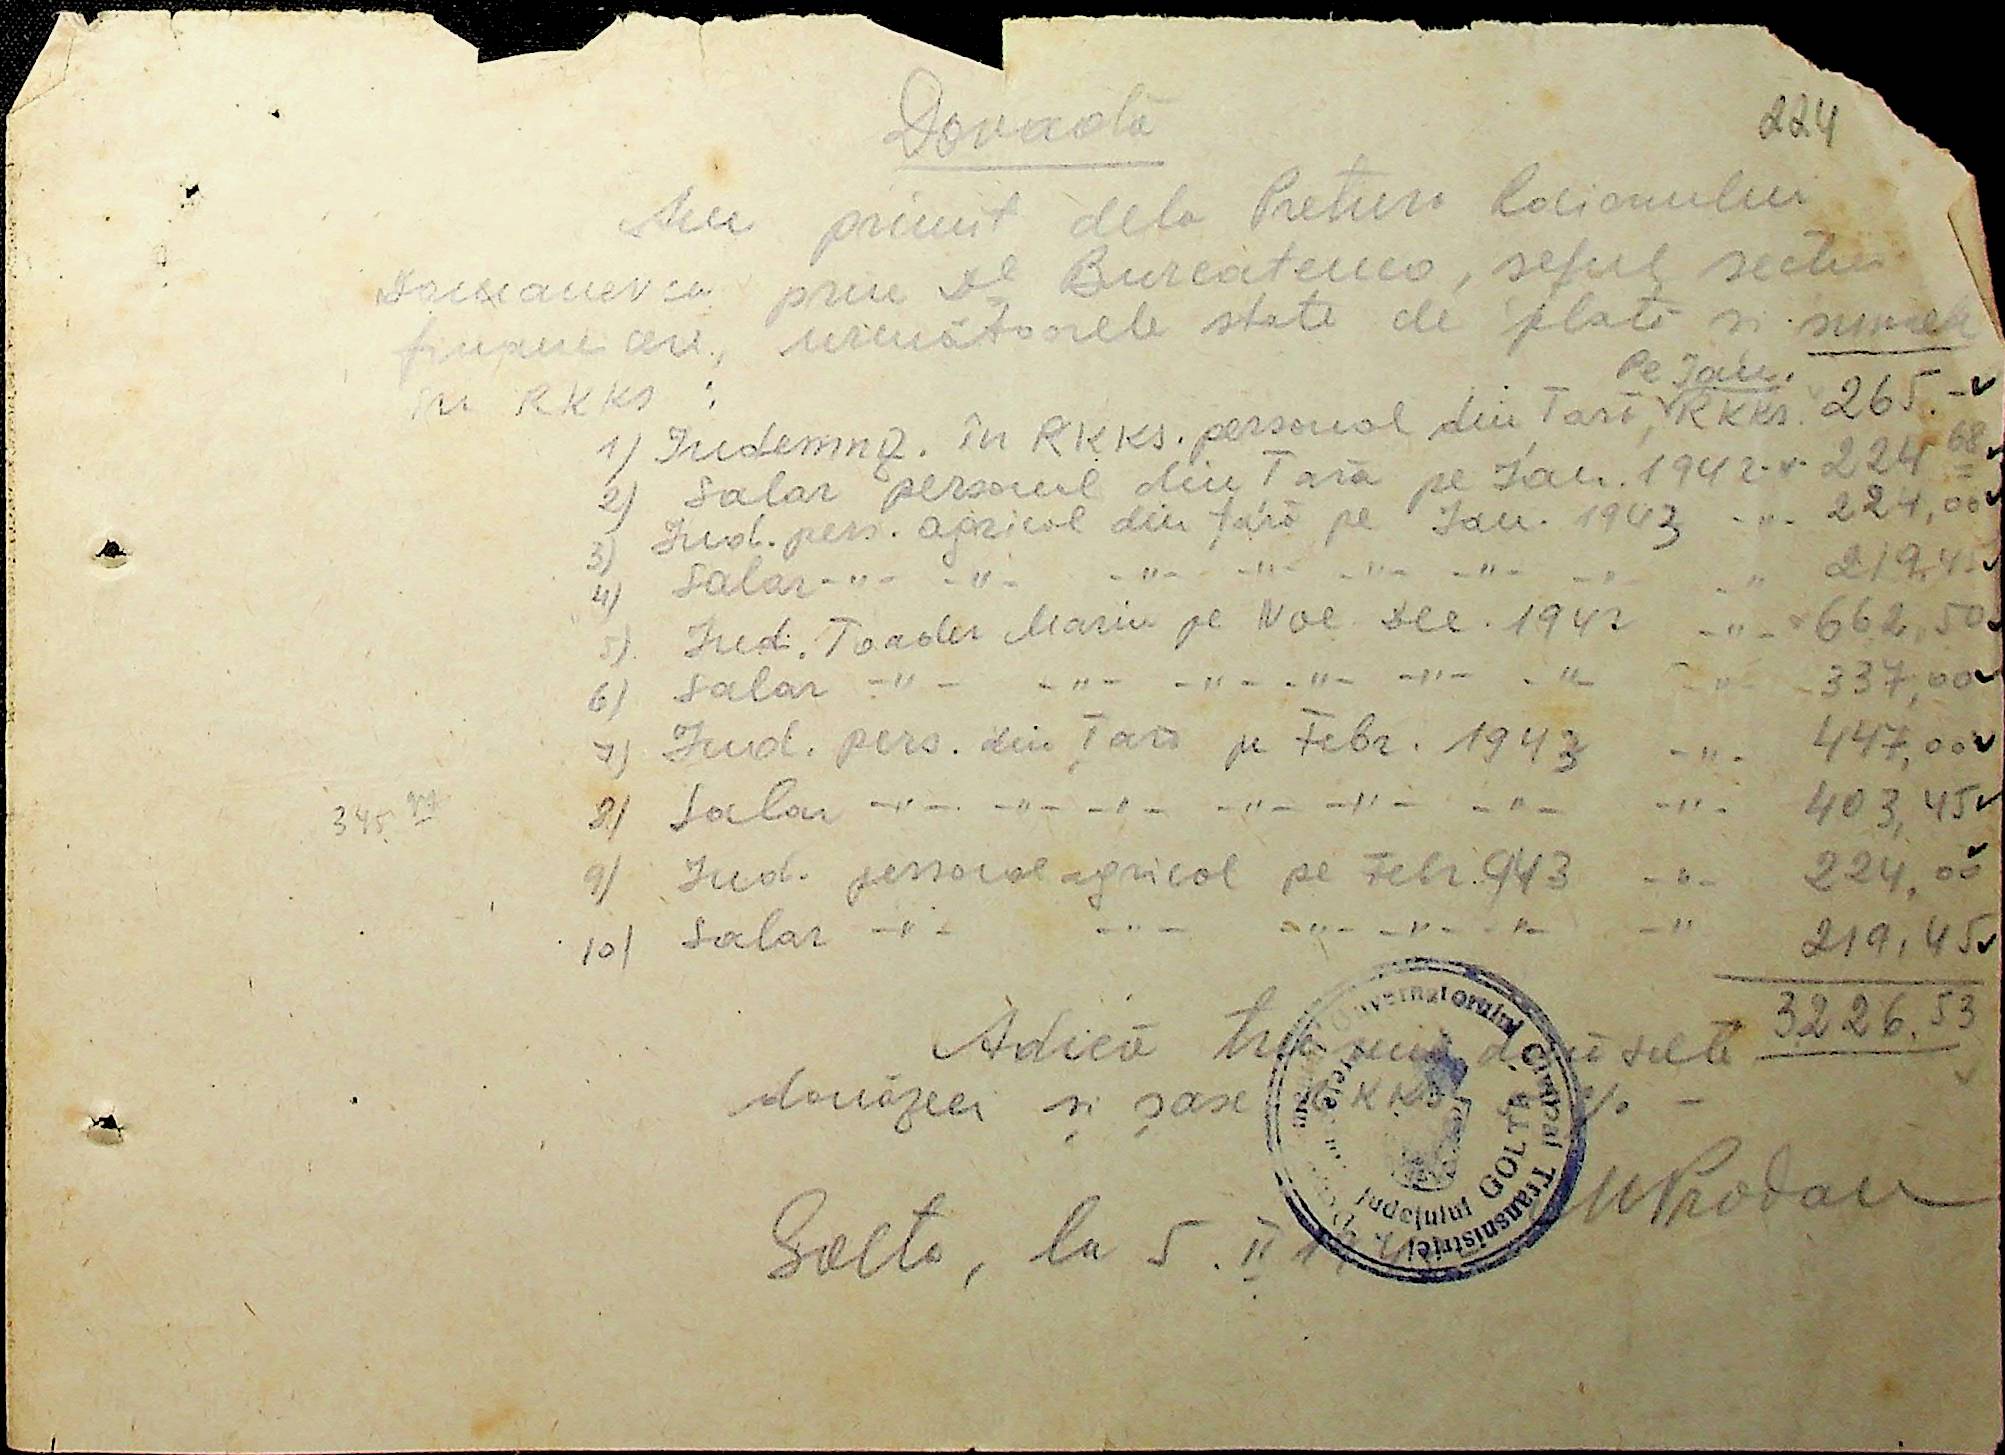 224
Dovadă
Am primit dela Pretura Raionului
Domanevca prin Dl Burcatenco, șeful secției
financiare, următoarele state de plată și sumele
în RKKS :
Pe Ian.
1) Indemniz. în RKKS. personal din Țară, RKKS. 265.-
2) Salar personal din Țară pe Ian. 1942 -"- 224 68
3) Ind. pers. agricol din țară pe Ian. 1943 -"- 224,00
4) Salar -"- -"- -"- -"- -"- -"- -"- -"- 219,45
5) Ind. Toader Marin pe Noe. Dec. 1942 -"- 662,50
6) Salar -"- -"- -"- -"- -"- -"- -"- 337,00
7) Ind. pers. din Țară pe Febr. 1943 -"- 447,00
345
8) Salar -"- -"- -"- -"- -"- -"- -"- 403,45
9) Ind. personal agricol pe Febr. 943 -"- 224,00
10) Salar -"- -"- -"- -"- -"- -"- 219,45
3226.53
Adică trei mii două sute
douăzeci și șase RKKS
Guvernatorului Civil al Transnistriei
Județului GOLTA
M Prodan
Golta, la 5. II 19